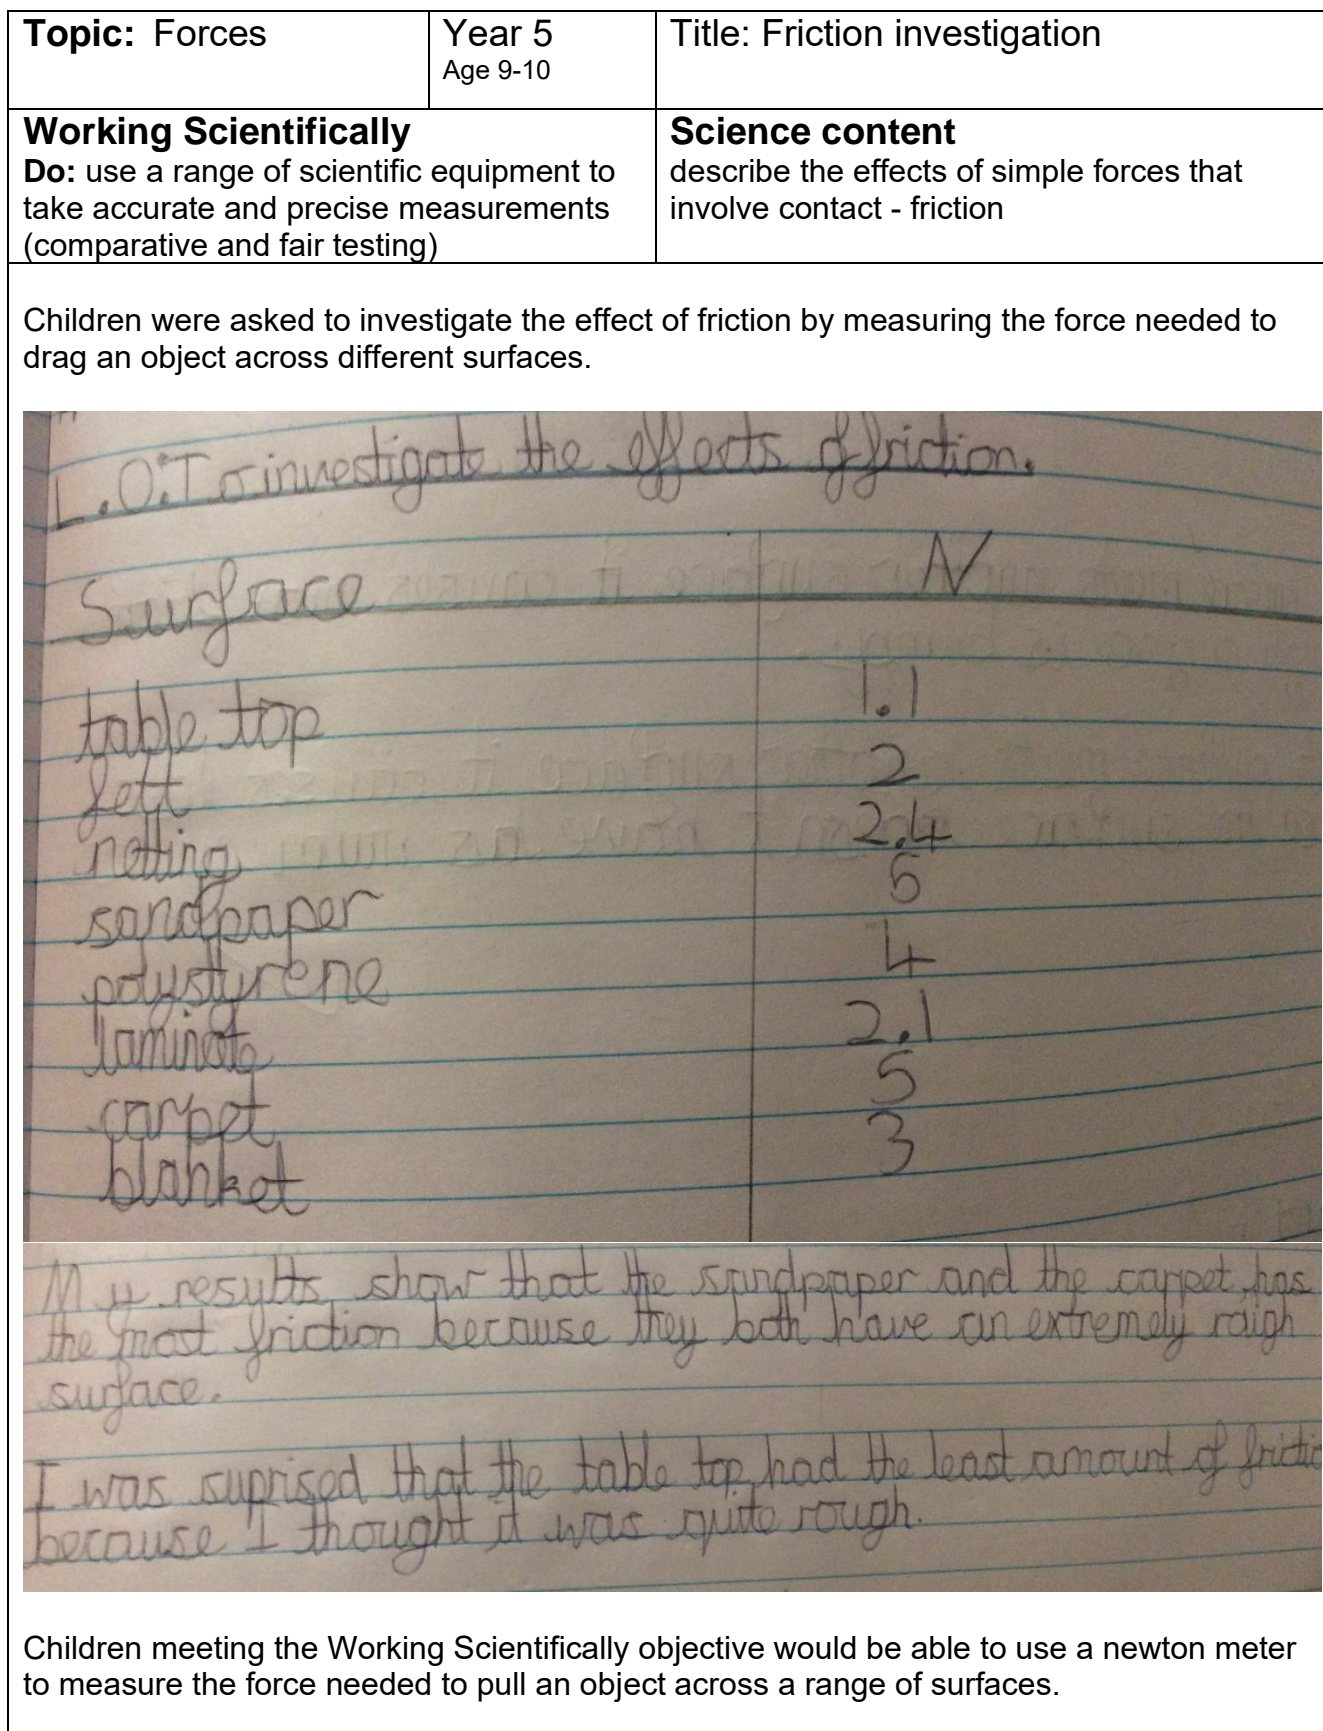 Topic: Forces
Year 5
Age 9-10
Title: Friction investigation
Working Scientifically
Do: use a range of scientific equipment to
take accurate and precise measurements
(comparative and fair testing)
Science content
describe the effects of simple forces that
involve contact - friction
Children were asked to investigate the effect of friction by measuring the force needed to
drag an object across different surfaces.
L.O: To investigate the effects of friction.
Surface N
table top 1.1
felt 2
netting 2.4
sandpaper 5
polystyrene 4
laminate 2.1
carpet 5
blanket 3
My results show that the sandpaper and the carpet, has
the most friction because they both have an extremely raigh
surface.
I was suprised that the table top had the least amount of frictio
because I thought it was quite rough.
Children meeting the Working Scientifically objective would be able to use a newton meter
to measure the force needed to pull an object across a range of surfaces.